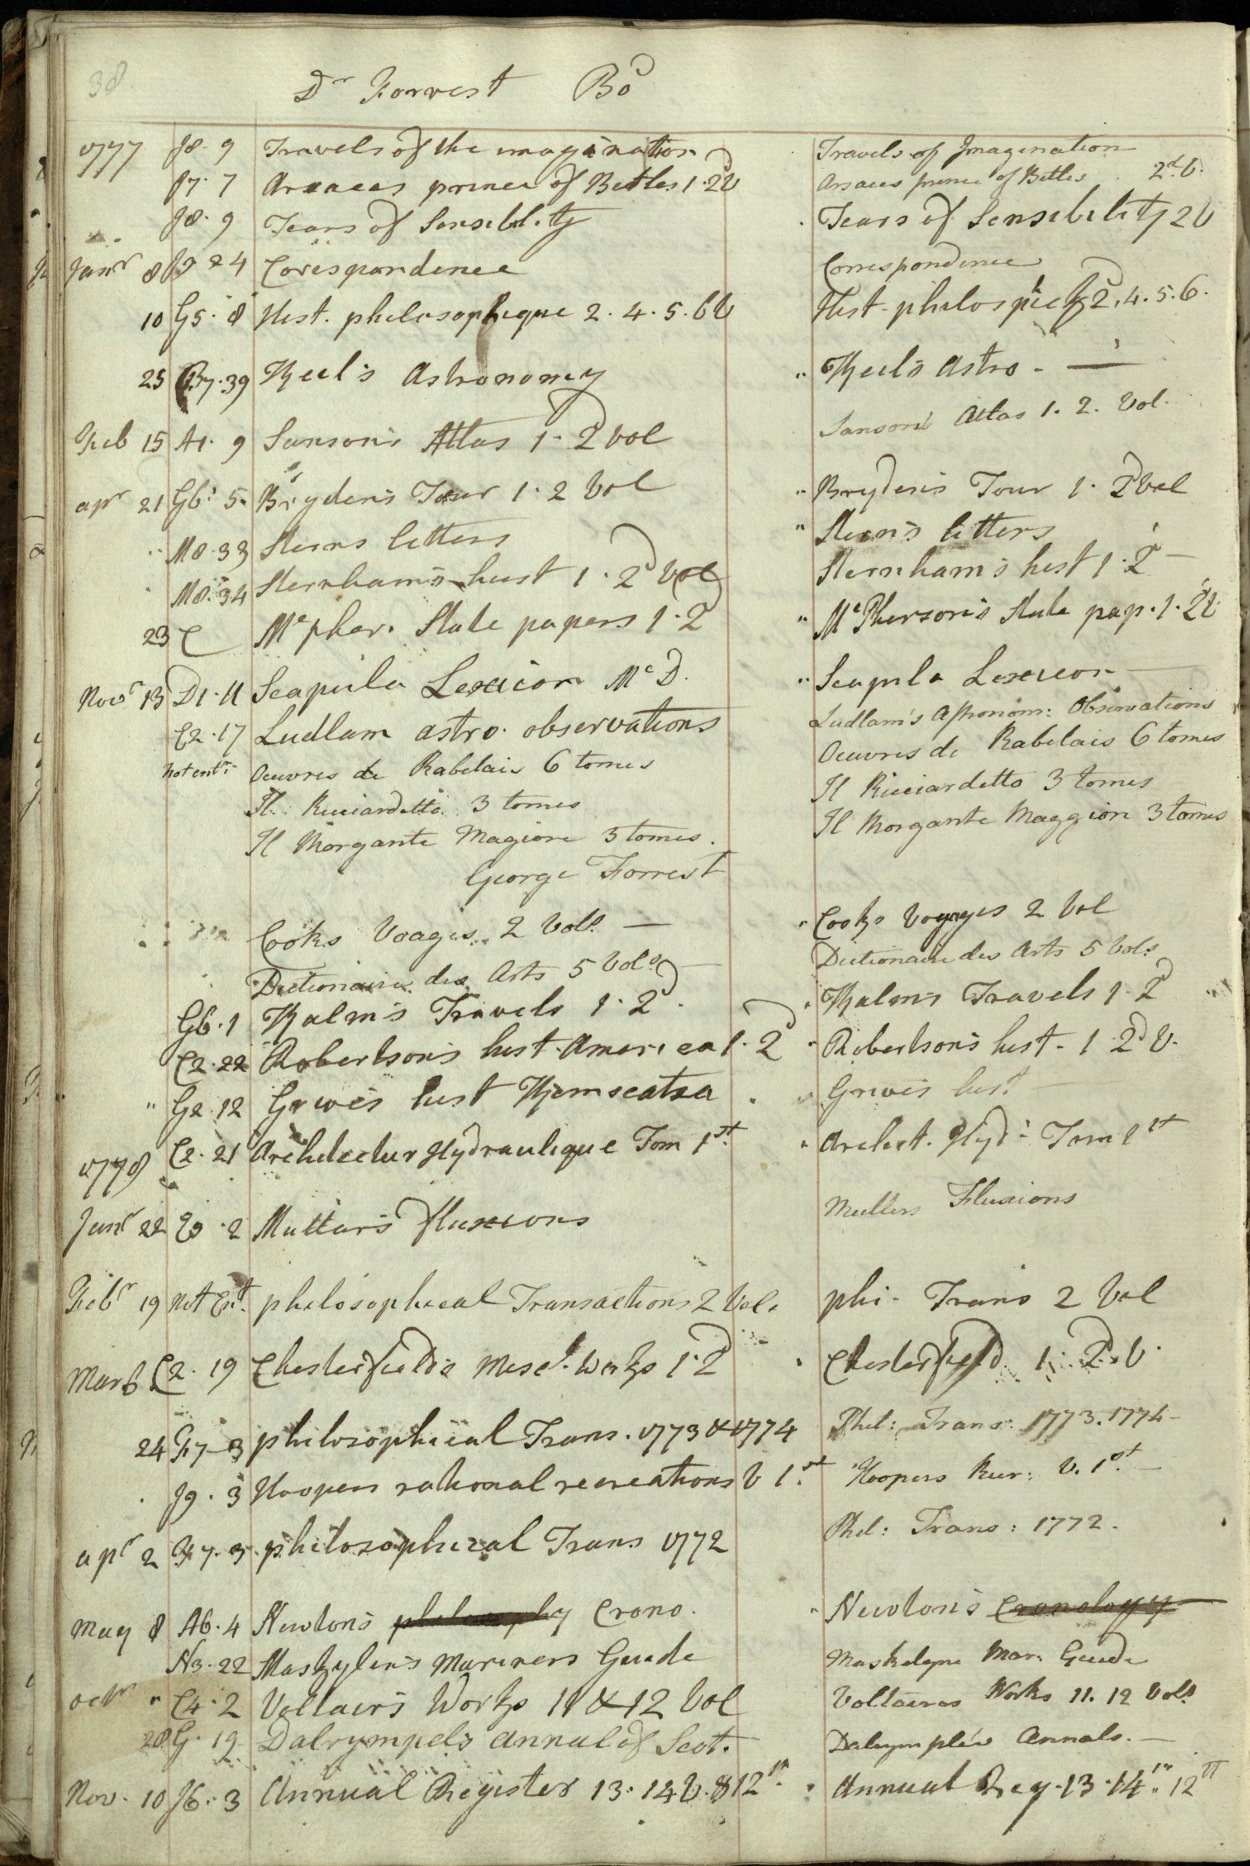 38
Dr Forrest Bod
1777 J8. 9 Travels of the imagination Travels of Imagination
J7. 7 Arsaces prince of Betles 1. 2d V Arsaces prince of Betles 2d. V.
J8. 9 Tears of Sensibility Tears of Sensibility 2 V
Janr 8 J9 24 Corispondence Correspondence
10 G5. 8 Hist. philosophique 2. 4. 5. 6 V Hist. philosp 2. 4. 5. 6.
25 B7. 39 Keel's Astronomy Keels Astro. —
Feb 15 A1. 9 Sanson's Attas 1. 2d vol Sansons Atlas 1. 2. Vol.
apr 21 G6. 5. Bryden's Tour 1. 2 Vol Bryden's Tour 1. 2d Vol
M8. 33 Sterns letters Stern's letters
M8. 34 Sternham's hist 1. 2d Vol Sternham's hist 1. 2d —
23 C Mcpher. State papers 1. 2d McPherson's State pap. 1. 2d V
Novr 13 D1. 11 Scapula Lexicon Mc D. Scapula Lexicon —
E2. 17 Ludlam astro. observations Ludlam's Astronom: Observations
not entr: Oeuvres de Rabelais 6 tomes Oeuvres de Rabelais 6 tomes
Il Ricciardetto 3 tomes Il Ricciardetto 3 tomes
Il Morgante Magiore 3 tomes. Il Morgante Maggiore 3 tomes
George Forrest
Cooks Voages. 2 Vols. — Cooks Voyages 2 Vol
Dictionaire des Arts 5 Vols — Dictionaire des Arts 5 Vols
G6. 1 Kalm's Travels 1. 2d. Kalm's Travels 1. 2d
C2. 22 Robertson's hist. America 1. 2d Robertson's hist. 1. 2d V.
G2. 12 Grives hist Kemscatza Grives hist
1778 C2. 21 Architectur Hydraulique Tom 1st. Archict. Hyd: Tom 1st
Janr 22 E9. 2 Mullar's fluxions Mullers Fluxions
Febr 19 not Ent. philosophical Transactions 2 Vol. phi. Trans 2 Vol
Mar 6 C2. 19 Chesterfield's Miscl. Works 1. 2d Chesterfield 1. 2d. V.
24 F7. 3 philosophical Trans. 1773 & 1774 Phil: Trans: 1773. 1774
J9. 3 Hoopers rational recreations V 1st. Hoopers Recr: V. 1st. —
apr 2 F7. 3. philosophical Trans 1772 Phil: Trans: 1772.
May 8 A6. 4 Newton's philosophy Crono. Newton's Cronology
N3. 22 Maskylen's Mariners Guide Maskelyne Mar. Guide
octr C4. 2 Voltair's Works 11 & 12 Vol Voltaires Works 11. 12 Vols
28 G. 19. Dalrympel's annal of Scot. Dalrymple's Annals. —
Nov. 10 J6. 3 Annual Register 13. 14 V. & 12th. Annual Reg. 13. 14th. 12th